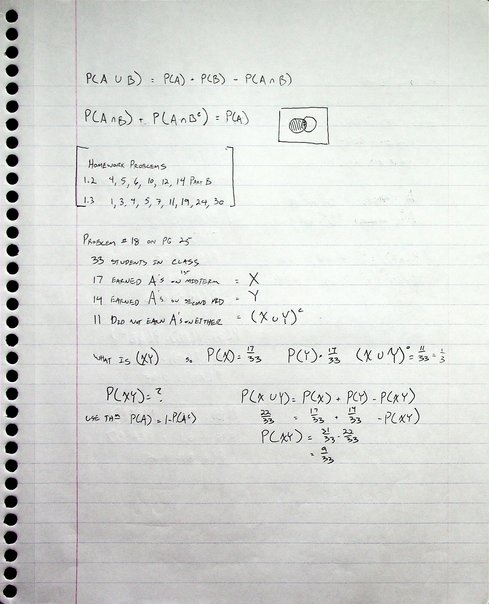 P(A ∪ B) = P(A) + P(B) - P(A ∩ B)
P(A ∩ B) + P(A ∩ Bᶜ) = P(A)
Homework Problems
1.2 4, 5, 6, 10, 12, 14 Part B
1.3 1, 3, 4, 5, 7, 11, 19, 24, 30
Problem # 18 on pg 25
33 students in class
17 earned A's on 1st midterm = X
14 earned A's on second mid = Y
11 Did not earn A's on either = (X ∪ Y)ᶜ
What is (XY) so P(X) = 17/33 P(Y) = 17/33 (X ∪ Y)ᶜ = 11/33 = 1/3
P(XY) = ? P(X ∪ Y) = P(X) + P(Y) - P(XY)
use P(A) = 1-P(Aᶜ) 22/33 = 17/33 + 14/33 - P(XY)
P(XY) = 31/33 - 22/33
= 9/33